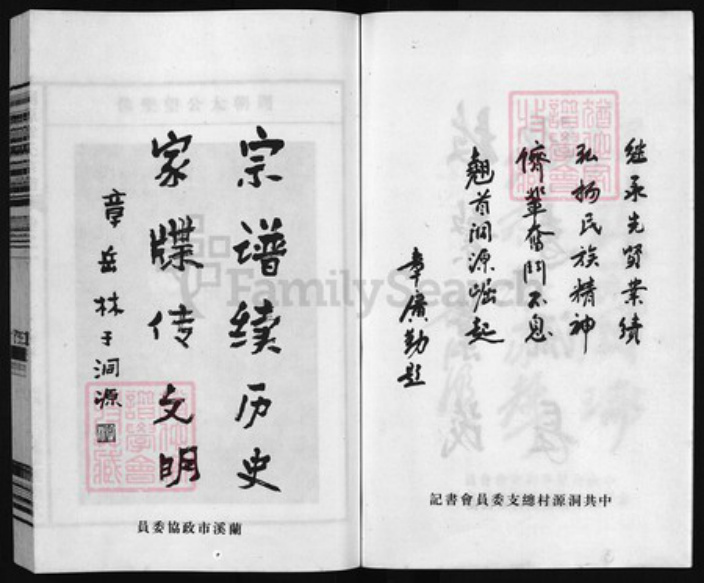 继承先贤業績
弘扬民族精神
儕辈奮鬥不息
翹首洞源崛起
章廣勤題
中共洞源村總支委員會書記
宗谱续历史
家牒传文明
章岳林于洞源
蘭溪市政協委員
FamilySearch